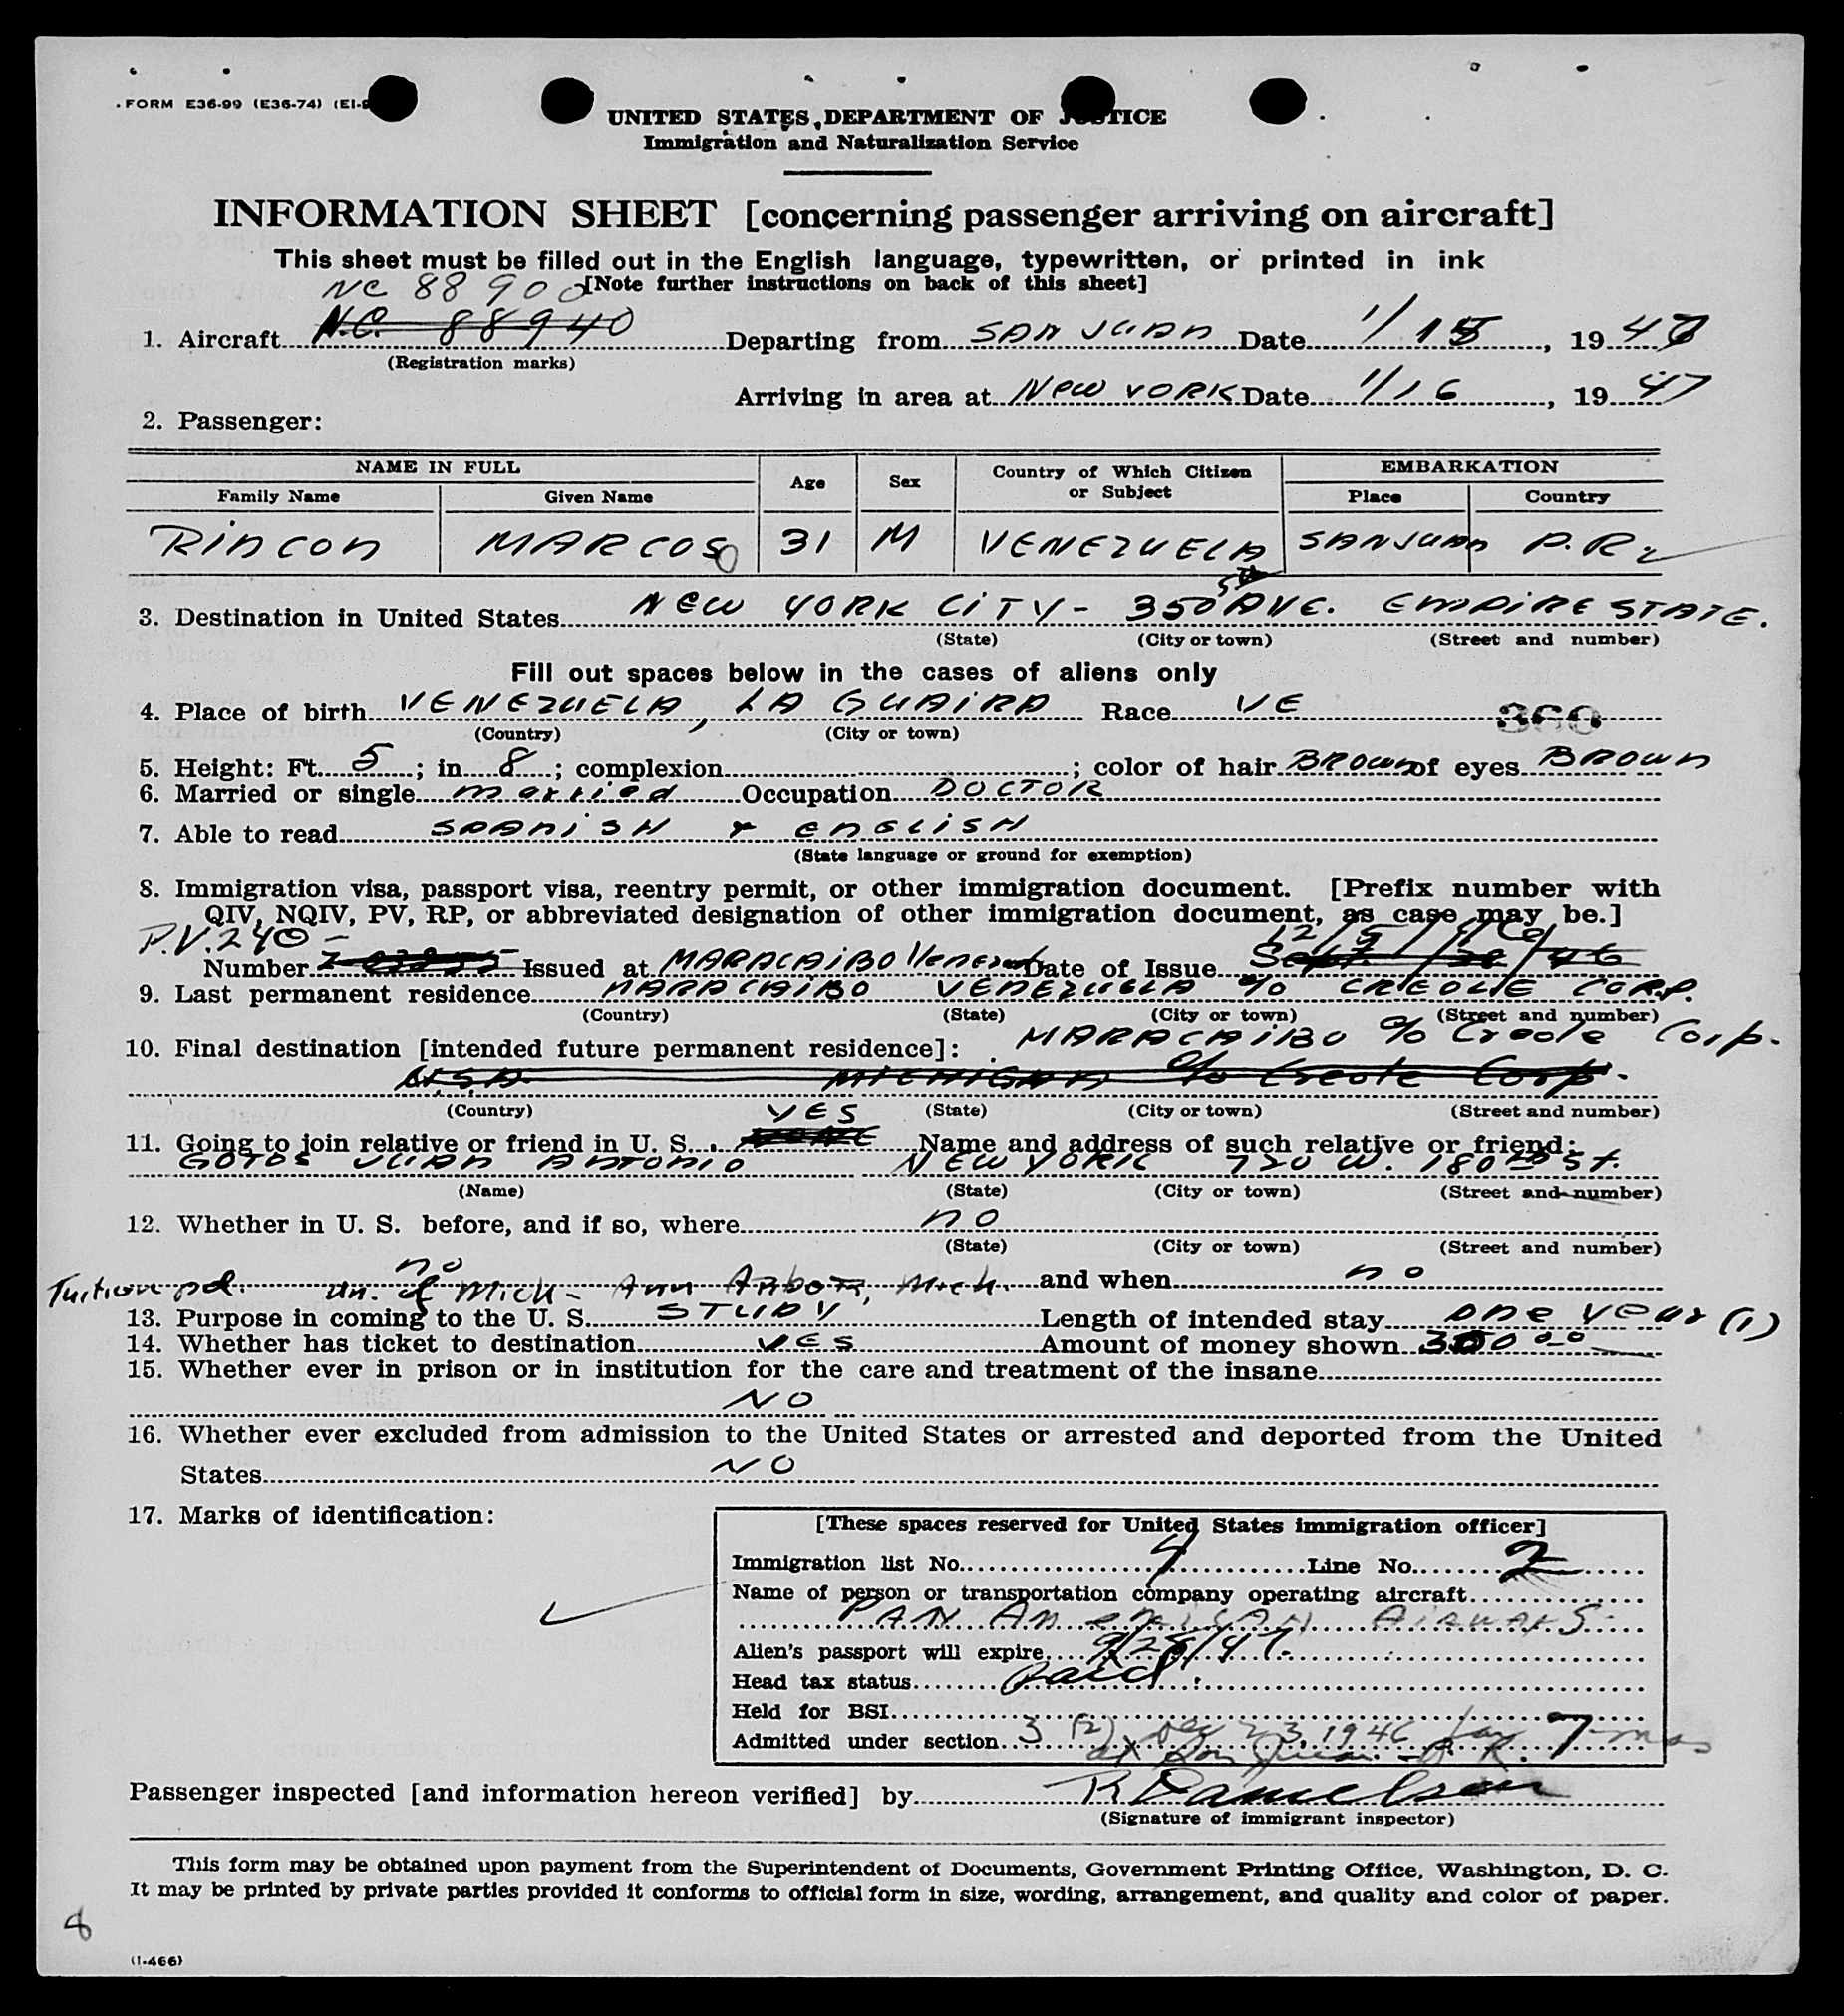 FORM E36-99 (E36-74) (EI-
UNITED STATES DEPARTMENT OF JUSTICE
Immigration and Naturalization Service
INFORMATION SHEET [concerning passenger arriving on aircraft]
This sheet must be filled out in the English language, typewritten, or printed in ink
NC 88900 [Note further instructions on back of this sheet]
1. Aircraft N.C. 88940 Departing from SAN JUAN Date 1/15, 1947
(Registration marks)
Arriving in area at New YORK Date 1/16, 1947
2. Passenger:
NAME IN FULL Age Sex Country of Which Citizen or Subject EMBARKATION
Family Name Given Name Place Country
RINCON MARCOS 31 M VENEZUELA SAN JUAN P.R.
3. Destination in United States NEW YORK CITY - 350 5th AVE. EMPIRE STATE.
(State) (City or town) (Street and number)
Fill out spaces below in the cases of aliens only
4. Place of birth VENEZUELA, LA GUAIRA Race VE 360
(Country) (City or town)
5. Height: Ft. 5; in. 8; complexion; color of hair BROWN of eyes BROWN
6. Married or single married Occupation DOCTOR
7. Able to read SPANISH & ENGLISH
(State language or ground for exemption)
8. Immigration visa, passport visa, reentry permit, or other immigration document. [Prefix number with
QIV, NQIV, PV, RP, or abbreviated designation of other immigration document, as case may be.]
P.V. 240 - 12/5/46
Number Issued at MARACAIBO Venezuela Date of Issue Sept / 46
9. Last permanent residence MARACAIBO VENEZUELA c/o CREOLE CORP.
(Country) (State) (City or town) (Street and number)
10. Final destination [intended future permanent residence]: MARACAIBO c/o Creole Corp.
U.S.A. MICHIGAN c/o Creole Corp.
(Country) (State) (City or town) (Street and number)
YES
11. Going to join relative or friend in U. S. NONE Name and address of such relative or friend:
JUAN ANTONIO NEW YORK 720 W. 180th St.
(Name) (State) (City or town) (Street and number)
12. Whether in U. S. before, and if so, where no
(State) (City or town) (Street and number)
no
Tuition pd. Un. of Mich - Ann Arbor, Mich. and when no
13. Purpose in coming to the U. S. STUDY Length of intended stay one year (1)
14. Whether has ticket to destination YES Amount of money shown 300 00
15. Whether ever in prison or in institution for the care and treatment of the insane
NO
16. Whether ever excluded from admission to the United States or arrested and deported from the United
States NO
17. Marks of identification:
[These spaces reserved for United States immigration officer]
Immigration list No. 4 Line No. 2
Name of person or transportation company operating aircraft
PAN AMERICAN AIRWAYS
Alien's passport will expire 9/28/47
Head tax status Paid
Held for BSI
Admitted under section 3 (2) Dec 23, 1946 for 7 mos
at San Juan P.R.
Passenger inspected [and information hereon verified] by R Danielson
(Signature of immigrant inspector)
This form may be obtained upon payment from the Superintendent of Documents, Government Printing Office, Washington, D. C.
It may be printed by private parties provided it conforms to official form in size, wording, arrangement, and quality and color of paper.
8
(I-466)